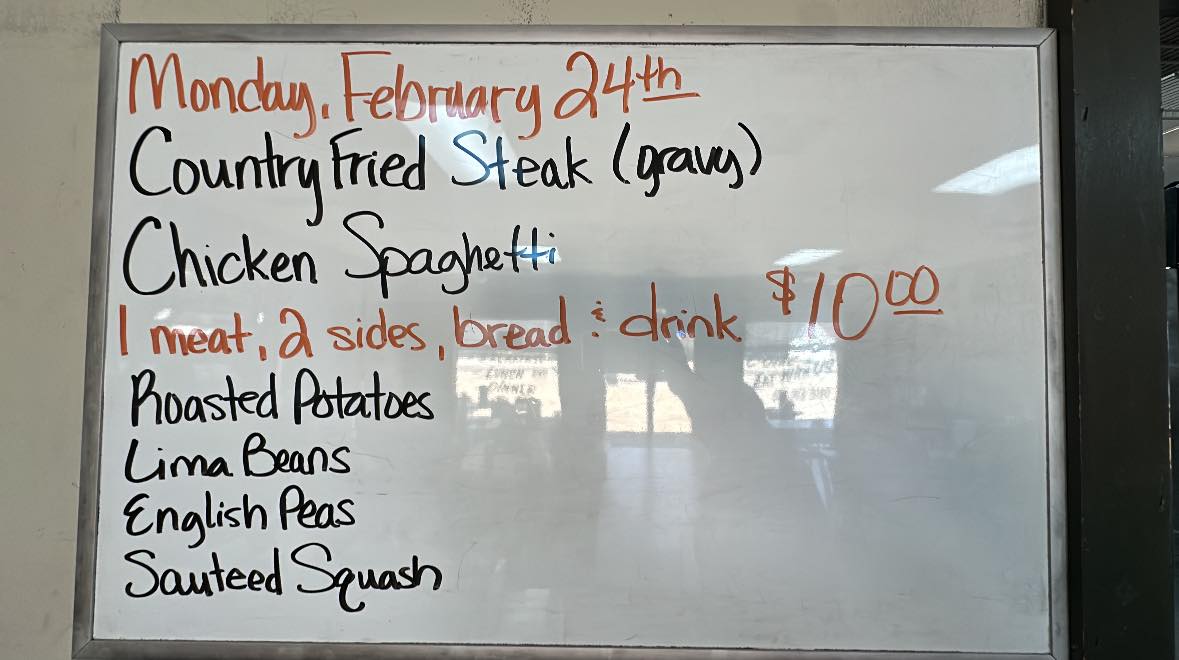 Monday, February 24th
Country Fried Steak (gravy)
Chicken Spaghetti
1 meat, 2 sides, bread & drink $10.00
Roasted Potatoes
Lima Beans
English Peas
Sauteed Squash